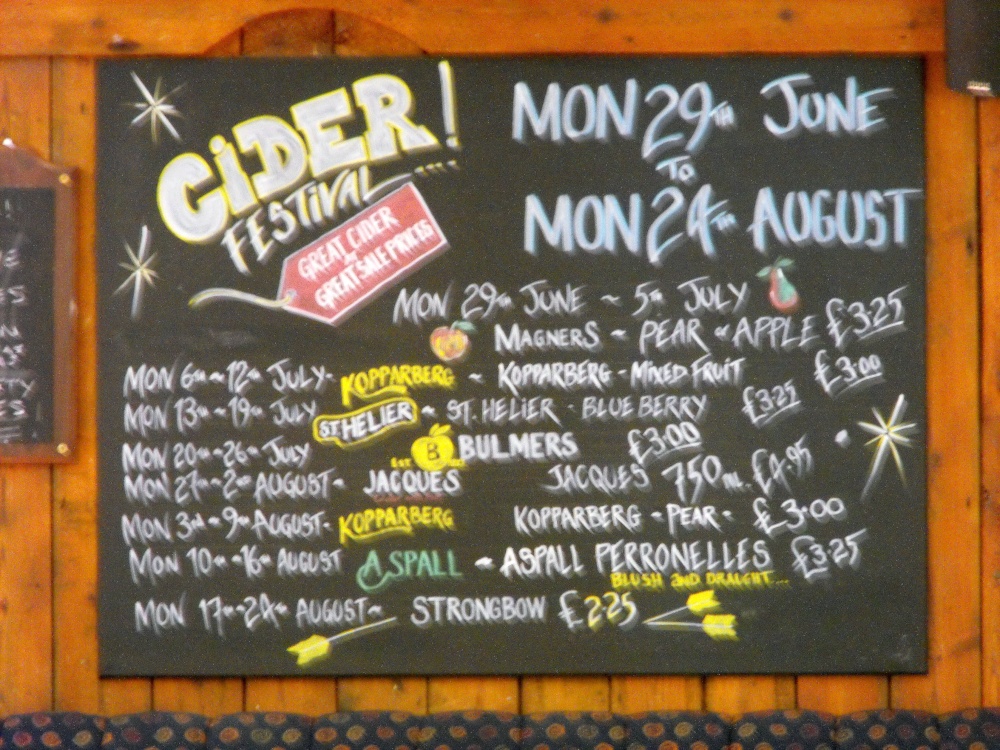 CiDER!
FESTiVAL
GREAT CIDER
at
GREAT SALE PRICES
MON 29TH JUNE
To
MON 24TH AUGUST
MON 29TH JUNE ~ 5TH JULY
MAGNERS ~ PEAR & APPLE £3.25
MON 6TH ~ 12TH JULY- KOPPARBERG ~ KOPPARBERG - MIXED FRUIT £3.00
MON 13TH ~ 19TH JULY ST HELIER ~ ST. HELIER - BLUEBERRY £3.25
MON 20TH ~ 26TH JULY B BULMERS £3.00
EST
MON 27TH ~ 2ND AUGUST - JACQUES JACQUES 750ML £4.95
MON 3RD ~ 9TH AUGUST- KOPPARBERG KOPPARBERG - PEAR - £3.00
MON 10TH ~ 16TH AUGUST ASPALL ~ ASPALL PERRONELLES £3.25
BLUSH AND DRAUGHT...
MON 17TH ~ 24TH AUGUST ~ STRONGBOW £2.25